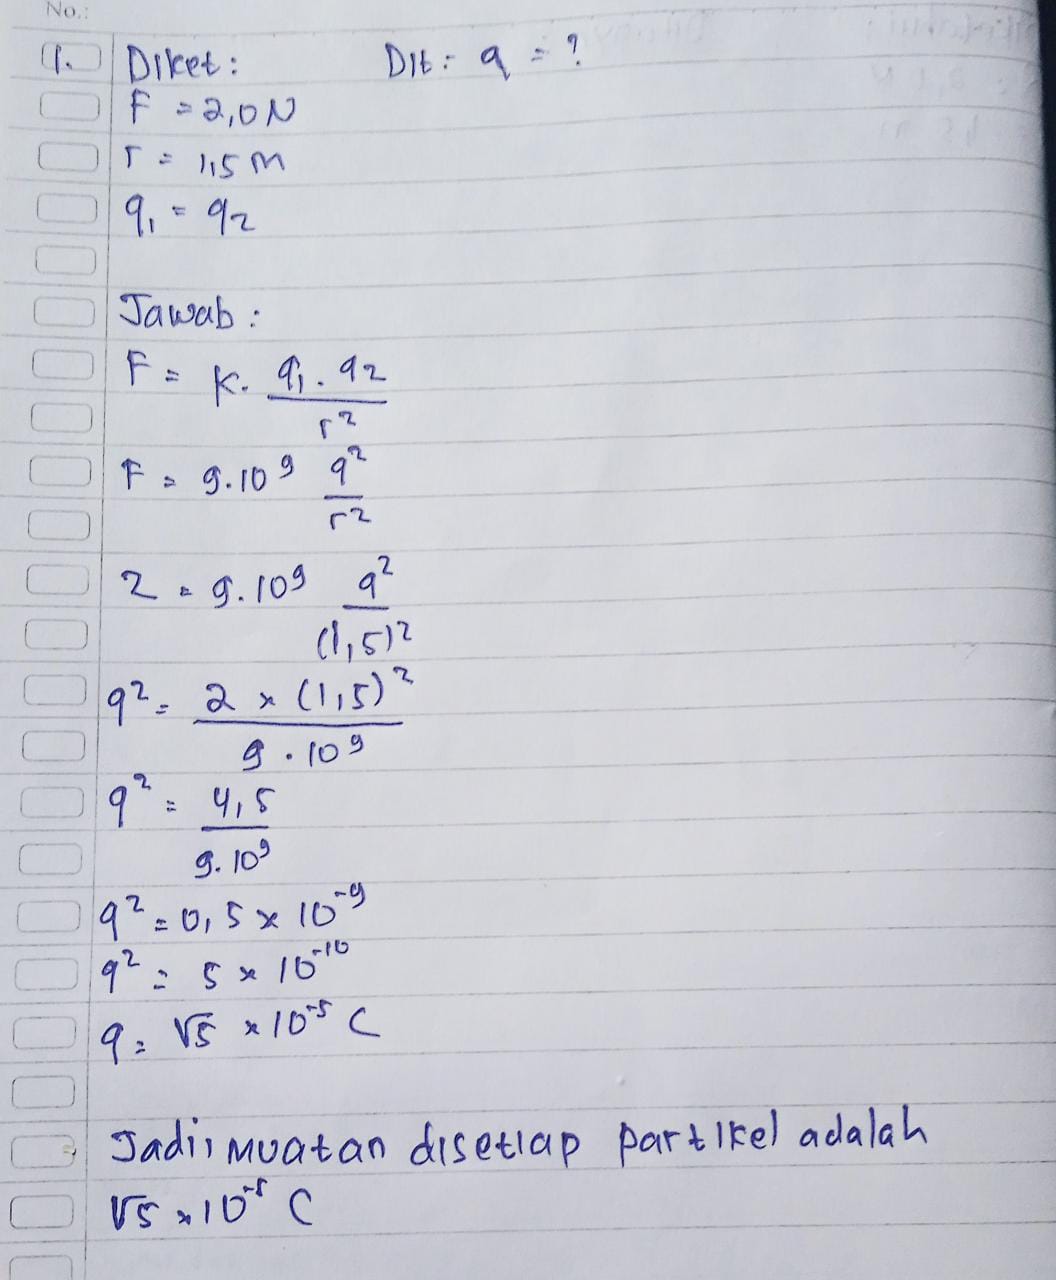 No.:
1. Diket: Dit: q = ?
F = 2,0 N
r = 1,5 m
q₁ = q₂
Jawab:
F = k. q₁ . q₂ / r²
F = 9.10⁹ q² / r²
2 = 9.10⁹ q² / (1,5)²
q² = 2 x (1,5)² / 9 . 10⁹
q² = 4,5 / 9. 10⁹
q² = 0,5 x 10⁻⁹
q² = 5 x 10⁻¹⁰
q = √5 x 10⁻⁵ C
Jadi, muatan disetiap partikel adalah
√5 x 10⁻⁵ C